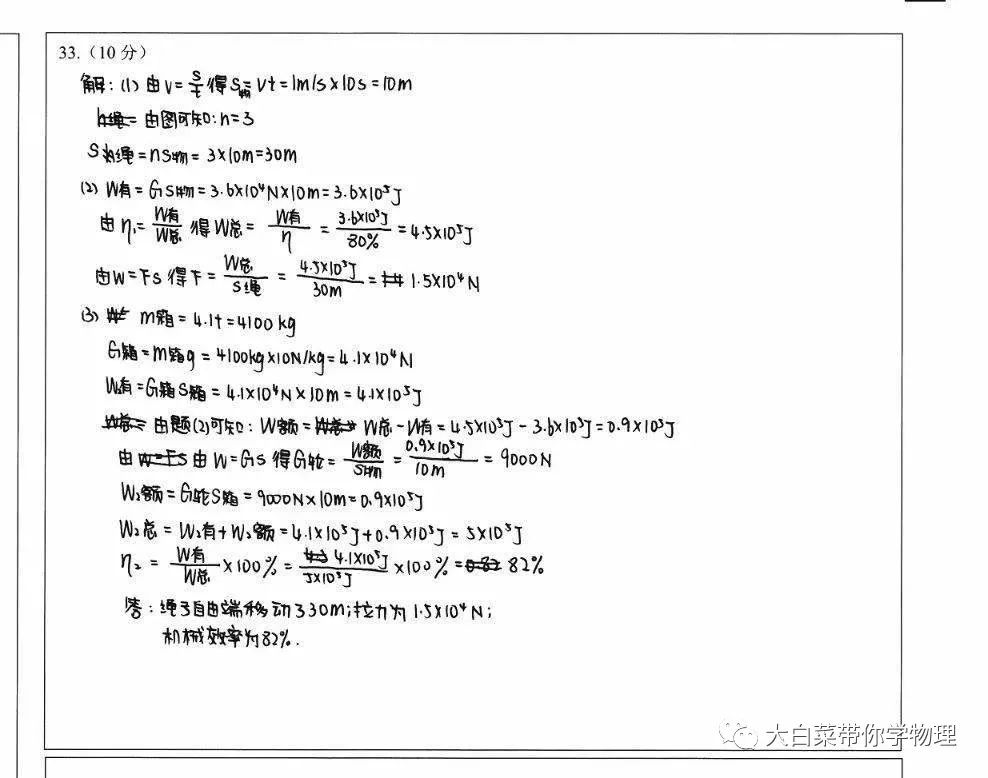 33.（10 分）
解：(1) 由 v=s/t 得 S物=vt=1m/s×10s=10m
由图可知：n=3
S绳=nS物=3×10m=30m
(2) W有=GS物=3.6×10⁴N×10m=3.6×10⁵J
由η₁=W有/W总 得 W总=W有/η=3.6×10⁵J/80%=4.5×10⁵J
由W=Fs 得 F=W总/S绳=4.5×10⁵J/30m=1.5×10⁴N
(3) m箱=4.1t=4100kg
G箱=m箱g=4100kg×10N/kg=4.1×10⁴N
W有=G箱S箱=4.1×10⁴N×10m=4.1×10⁵J
由题(2)可知：W额=W总-W有=4.5×10⁵J-3.6×10⁵J=0.9×10⁵J
由W=GS 得 G轮=W额/S物=0.9×10⁵J/10m=9000N
W₂额=G轮S箱=9000N×10m=0.9×10⁵J
W₂总=W₂有+W₂额=4.1×10⁵J+0.9×10⁵J=5×10⁵J
η₂=W有/W总×100%=4.1×10⁵J/5×10⁵J×100%=82%
答：绳子自由端移动了30m；拉力为1.5×10⁴N；
机械效率为82%.
大白菜带你学物理